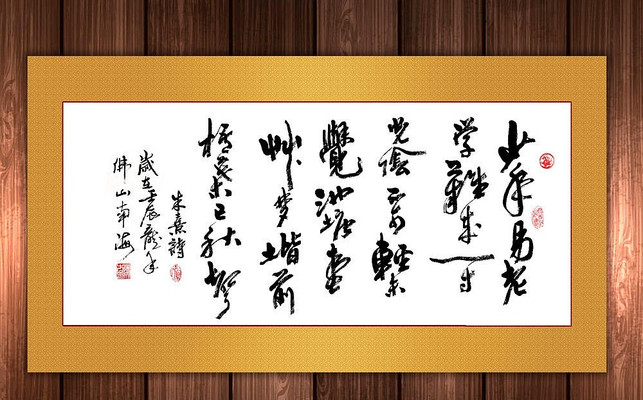 少年易老
学難成一寸
光陰不可輕未
覺池塘春
艸梦堦前
梧葉已秋聲
朱熹詩
歲在壬辰龍年
佛山南海